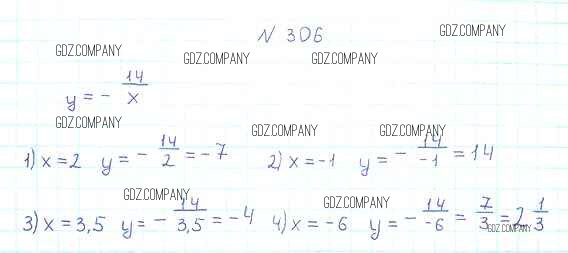 № 306
GDZ.COMPANY
GDZ.COMPANY
GDZ.COMPANY
GDZ.COMPANY
y = - 14/x
GDZ.COMPANY
GDZ.COMPANY
GDZ.COMPANY
1) x = 2 y = - 14/2 = -7 2) x = -1 y = - 14/-1 = 14
GDZ.COMPANY
GDZ.COMPANY
3) x = 3,5 y = - 14/3,5 = -4 4) x = -6 y = - 14/-6 = 7/3 = 2 1/3
GDZ.COMPANY